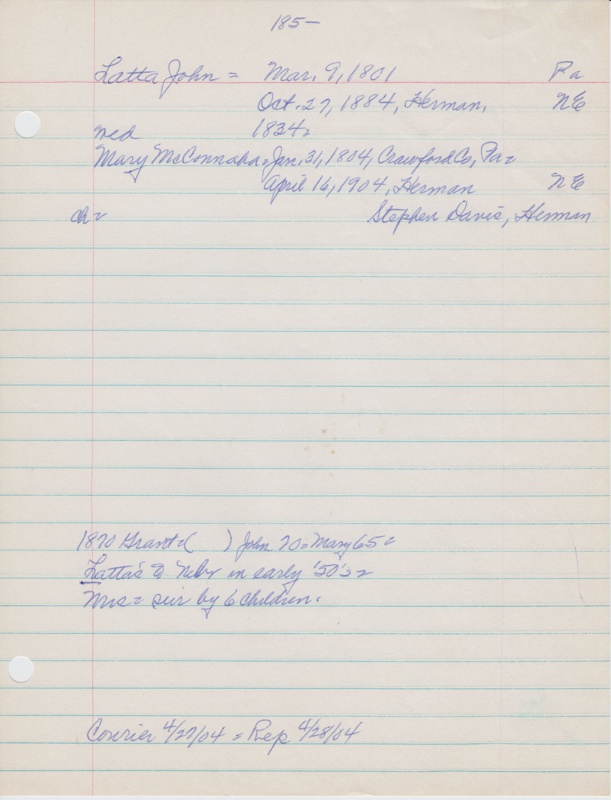 185-
Latta John = Mar. 9, 1801 Pa
Oct. 27, 1884, Herman, NE
med 1834=
Mary McConnaha = Jan. 31, 1804, Crawford Co, Pa=
April 16, 1904, Herman NE
ch= Stephen Davis, Herman
1870 Grant=( ) John 70=Mary 65=
Latta's to Nebr in early '50's=
Mrs= sur by 6 children.
Courier 4/27/04 = Rep 4/28/04